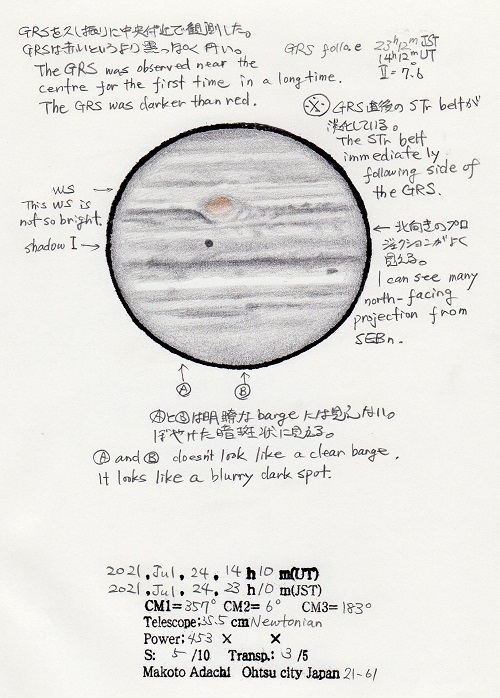 GRSを久し振りに中央付近で観測した。
GRSは赤いというより黒っぽく丹い。
The GRS was observed near the
centre for the first time in a long time.
The GRS was darker than red.
GRS follow 23h12m JST
14h12m UT
II=7.6°
GRS直後のSTr beltが
淡化している。
The STr belt
immediately
following side of
the GRS.
WS →
This WS is
not so bright.
shadow I →
← 北向きのプロ
ジェクションがよく
見える。
I can see many
north-facing
projection from
SEBn.
Ⓐ Ⓑ
ⒶとⒷは明瞭なbargeには見えない。
ぼやけた暗斑状に見える。
Ⓐ and Ⓑ doesn't look like a clear barge.
It looks like a blurry dark spot.
2021, Jul, 24, 14 h 10 m(UT)
2021, Jul, 24, 23 h 10 m(JST)
CM1=357° CM2=6° CM3=183°
Telescope;35.5 cm Newtonian
Power;453 × ×
S: 5 /10 Transp.: 3 /5
Makoto Adachi Ohtsu city Japan 21-61